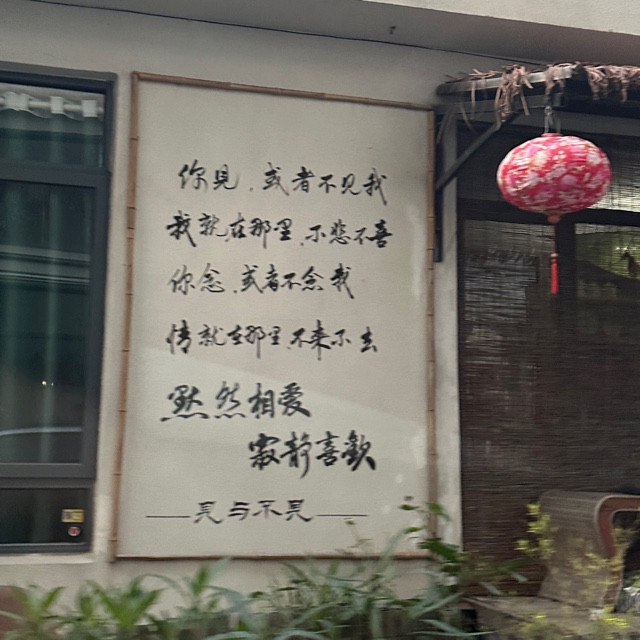 你见，或者不见我
我就在那里，不悲不喜
你念，或者不念我
情就在那里，不来不去
默然相爱
寂静喜歡
——见与不见——